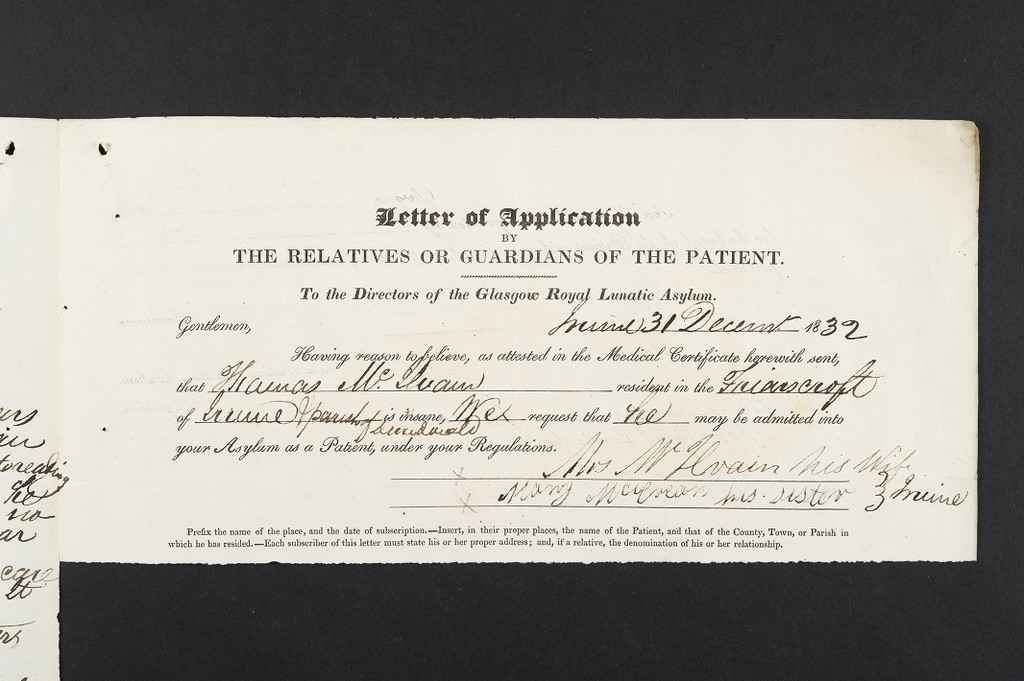 Letter of Application
BY
THE RELATIVES OR GUARDIANS OF THE PATIENT.
To the Directors of the Glasgow Royal Lunatic Asylum.
Gentlemen,
Irvine 31 Decemr 1832
Having reason to believe, as attested in the Medical Certificate herewith sent,
that Thomas Mc Ilvain resident in the Friarscroft
of Irvine & parish of Dundonald is insane, We request that he may be admitted into
your Asylum as a Patient, under your Regulations.
Mrs Mc Ilvain his Wife
Mary his sister Irvine
Prefix the name of the place, and the date of subscription.—Insert, in their proper places, the name of the Patient, and that of the County, Town, or Parish in
which he has resided.—Each subscriber of this letter must state his or her proper address; and, if a relative, the denomination of his or her relationship.